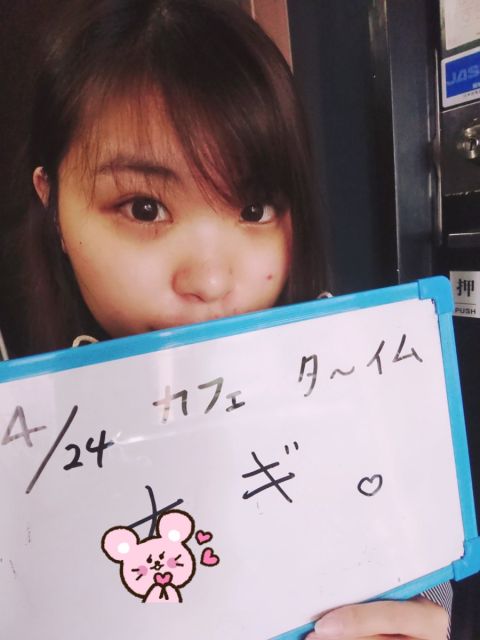 JAS
押
PUSH
4/24 カフェ タ〜イム
ギ ♡